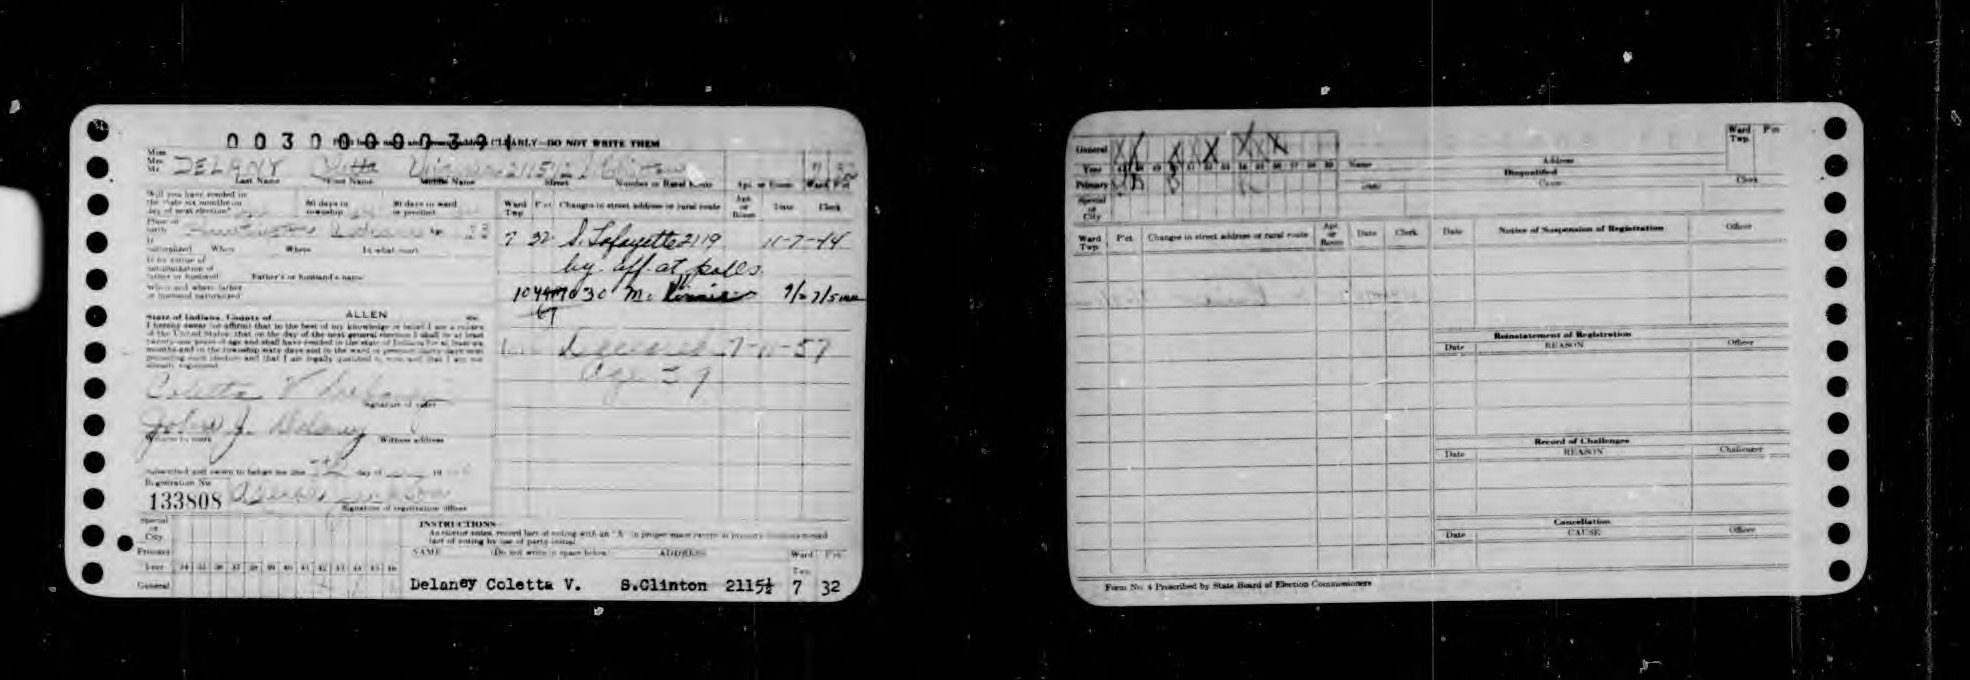 0030000030
CLEARLY—DO NOT WRITE THEM
Miss
Mrs.
Mr. DELANY Coletta 2115½ S. Clinton 7 32
Last Name First Name Middle Name Street Number or Rural Route Apt. or Room Ward P'ct
Will you have resided in
the state six months on
day of next election? 60 days in
township 30 days in ward
or precinct
Place of
birth Huntington Indiana Age
If
naturalized When Where In what court
If by virtue of
naturalization of
father or husband Father's or husband's name
When and where father
or husband naturalized
State of Indiana, County of ALLEN
I hereby swear (or affirm) that to the best of my knowledge or belief I am a citizen
of the United States; that on the day of the next general election I shall be at least
twenty-one years of age and shall have resided in the state of Indiana for at least six
months and in the township sixty days and in the ward or precinct thirty days next
preceding such election and that I am legally qualified to vote and that I am not
already registered.
Coletta V Delany
Signature of voter
John J. Delany
Witness to mark Witness address
Subscribed and sworn to before me this day of 19
Registration No.
133808
Signature of registration officer
Ward
Twp. P'ct Changes in street address or rural route Apt.
or
Room Date Clerk
7 32 S. Lafayette 2119 11-7-44
by aff. at polls.
1030 Mc Kinnie
Deceased 7-11-57
age 39
Special
or
City
Primary
Year 34 35 36 37 38 39 40 41 42 43 44 45 46
General
INSTRUCTIONS
As elector votes, record fact of voting with an "X" in proper space except at primary
fact of voting by use of party initial
NAME (Do not write in space below) ADDRESS Ward
Twp. P'ct.
Delaney Coletta V. S.Clinton 2115½ 7 32
General X X X X X X
Year 47 48 49 50 51 52 53 54 55 56 57 58 59
Primary
Special
or
City
Name Address Ward
Twp. P'ct
Disqualified
Date Cause Clerk
Ward
Twp. P'ct. Changes in street address or rural route Apt.
or
Room Date Clerk
Date Notice of Suspension of Registration Officer
Reinstatement of Registration
Date REASON Officer
Record of Challenges
Date REASON Challenger
Cancellation
Date CAUSE Officer
Form No. 4 Prescribed by State Board of Election Commissioners